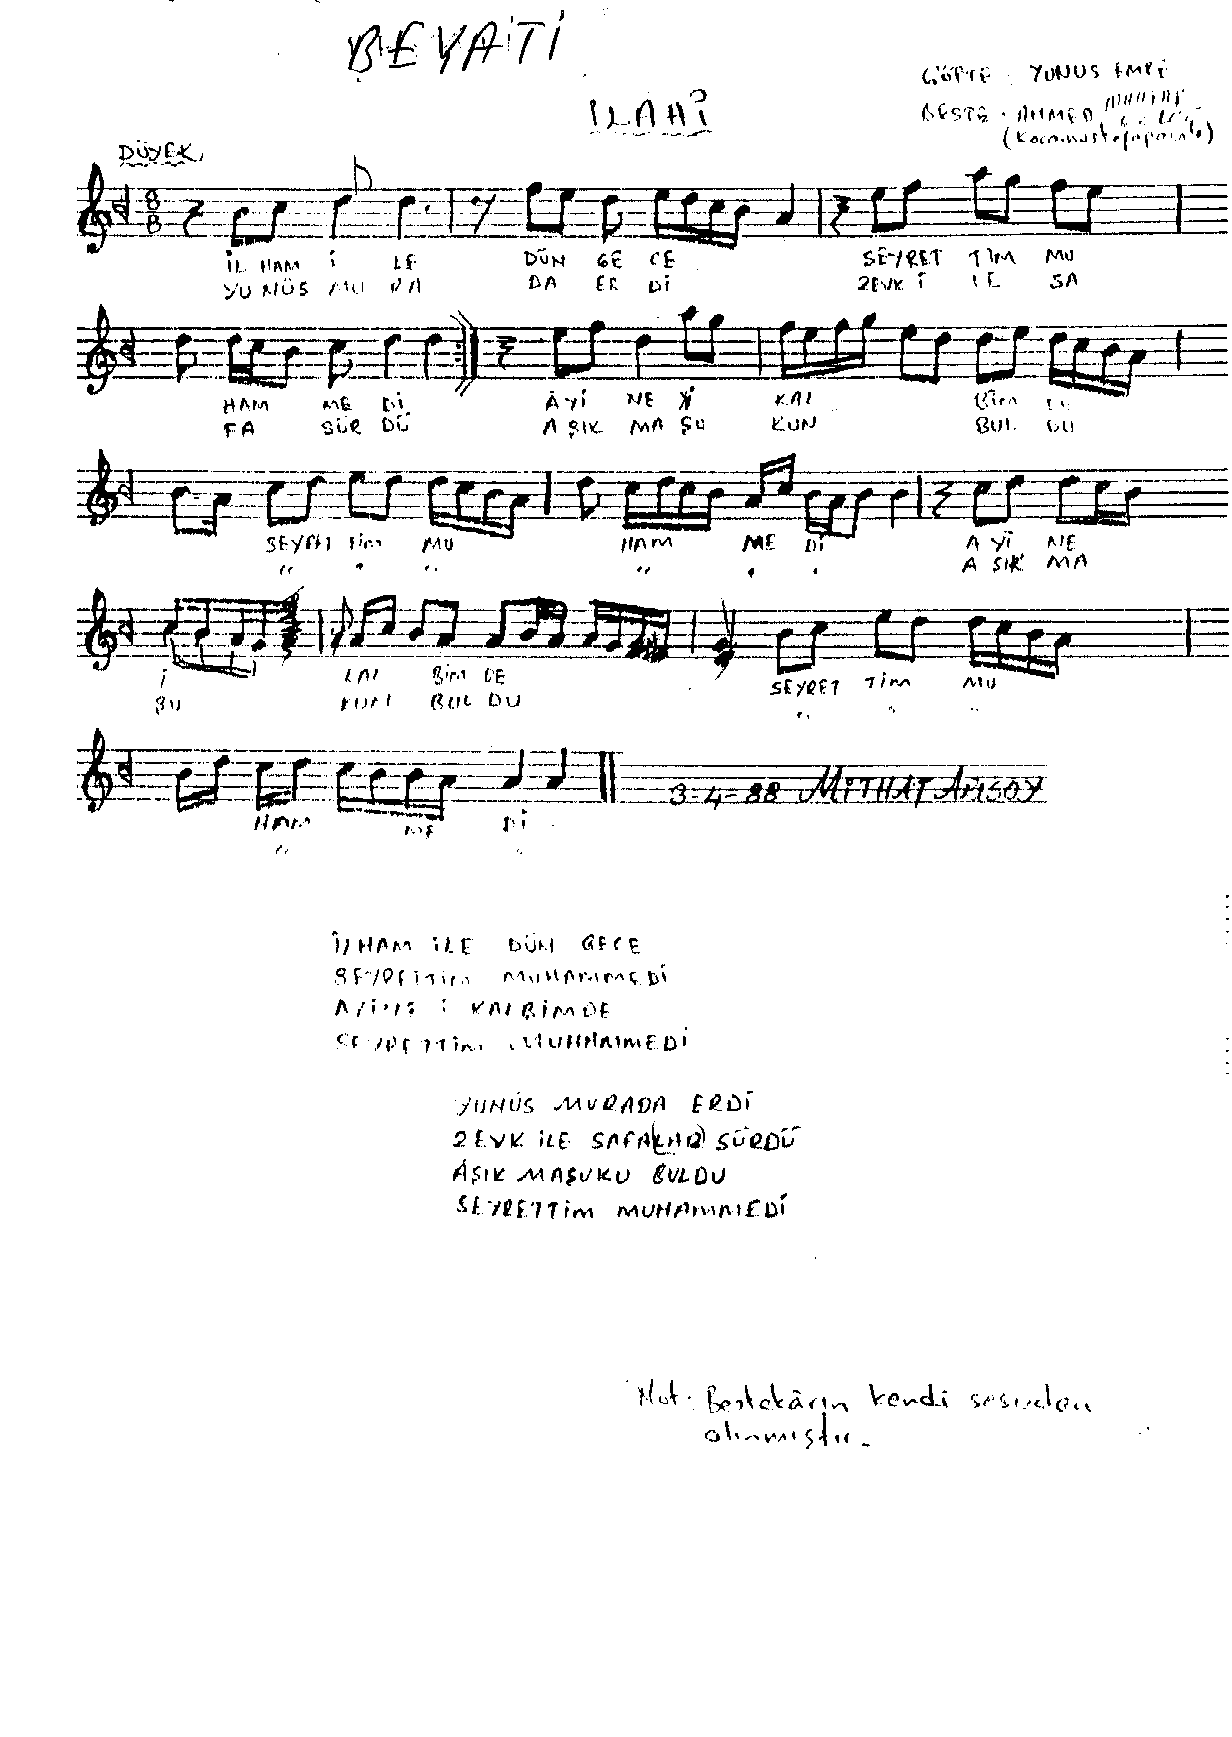 BEYATİ
İLAHİ
GÜFTE : YUNUS EMRE
BESTE : AHMED
DÜYEK
8
8
İL HAM İ LE DÜN GE CE SEYRET TİM MU
YU NÜS MU RA DA ER Dİ ZEVK İ LE SA
HAM ME Dİ AYİ NE Yİ KAL BİM DE
FA SÜR DÜ A ŞIK MA ŞU KUN BUL DU
SEYRET TİM MU HAM ME Dİ A Yİ NE
" " " " " " A ŞIK MA
İ KAL BİM DE SEYRET TİM MU
ŞU KUN BUL DU " " "
HAM ME Dİ
" "
3-4-88 MİTHAT ARISOY
İLHAM İLE DÜN GECE
SEYRETTİM MUHAMMEDİ
AYİNE İ KALBİMDE
SEYRETTİM MUHAMMEDİ
YUNÜS MURADA ERDİ
ZEVK İLE SAFA(LAR) SÜRDÜ
AŞIK MAŞUKU BULDU
SEYRETTİM MUHAMMEDİ
Not: Bestekârın kendi sesinden
alınmıştır.